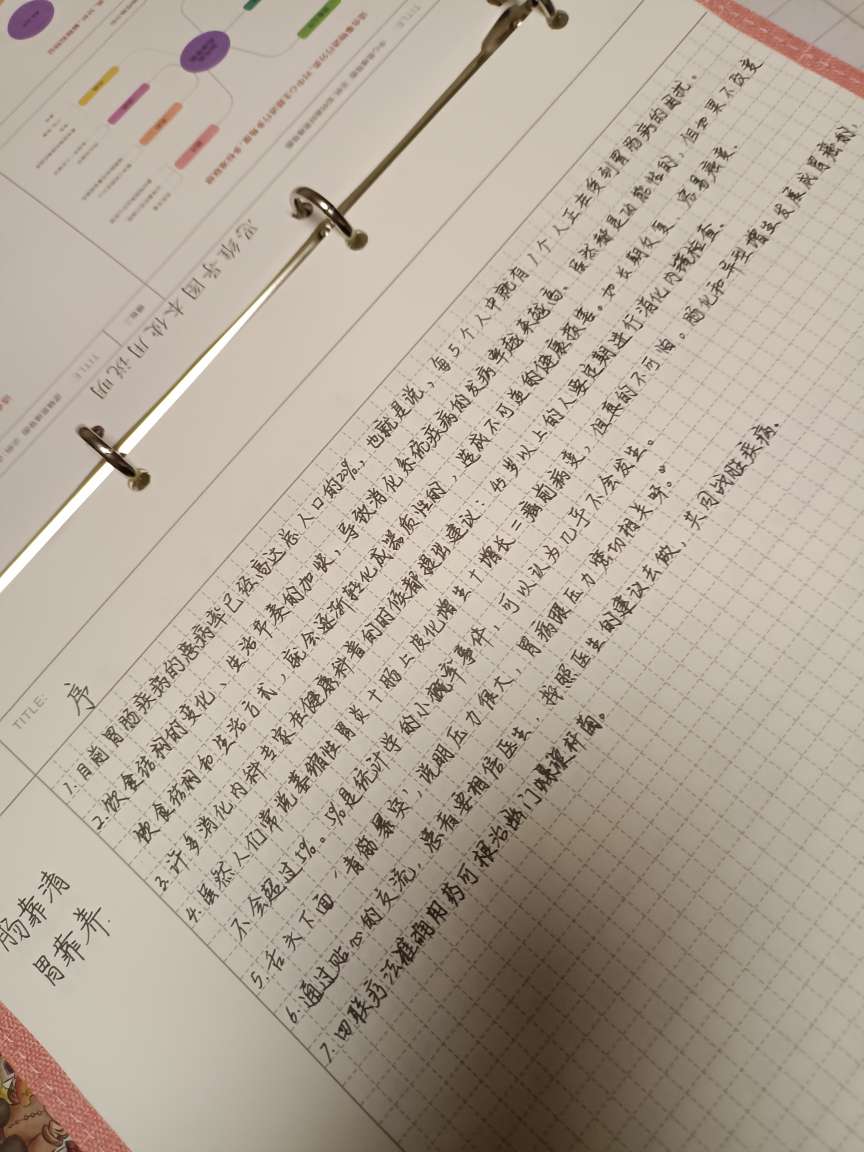 思维导图本使用说明
TITLE:
TITLE:
TITLE:
序
肠靠清
胃靠养.
1.目前胃肠疾病的患病率已经高达总人口的20%,也就是说,每5个人中就有1个人正在受到胃肠病的困扰。
2.饮食结构的变化、生活节奏的加快,导致消化系统疾病的发病率越来越高。虽然都是功能性的,但如果不改变
饮食结构和生活方式,就会逐渐转化成器质性的,造成不可逆的健康损害。如长期反复,容易癌变.
3.许多消化内科专家在健康科普的时候都提出建议:45岁以上的人要定期进行消化内镜检查.
4.虽然人们常说萎缩性胃炎+肠上皮化增生+增长=癌前病变,但真的不可怕。肠化和异型增生发展成胃癌的,
不会超过1%。1%是统计学的小概率事件,可以认为几乎不会发生。
5.舌头下面‘青筋暴突’,说明压力很大,胃病跟压力密切相关呀。
6.通过贴心的交流,患者要相信医生,按照医生的建议去做,共同战胜疾病.
7.四联疗法准确用药可根治幽门螺旋杆菌。